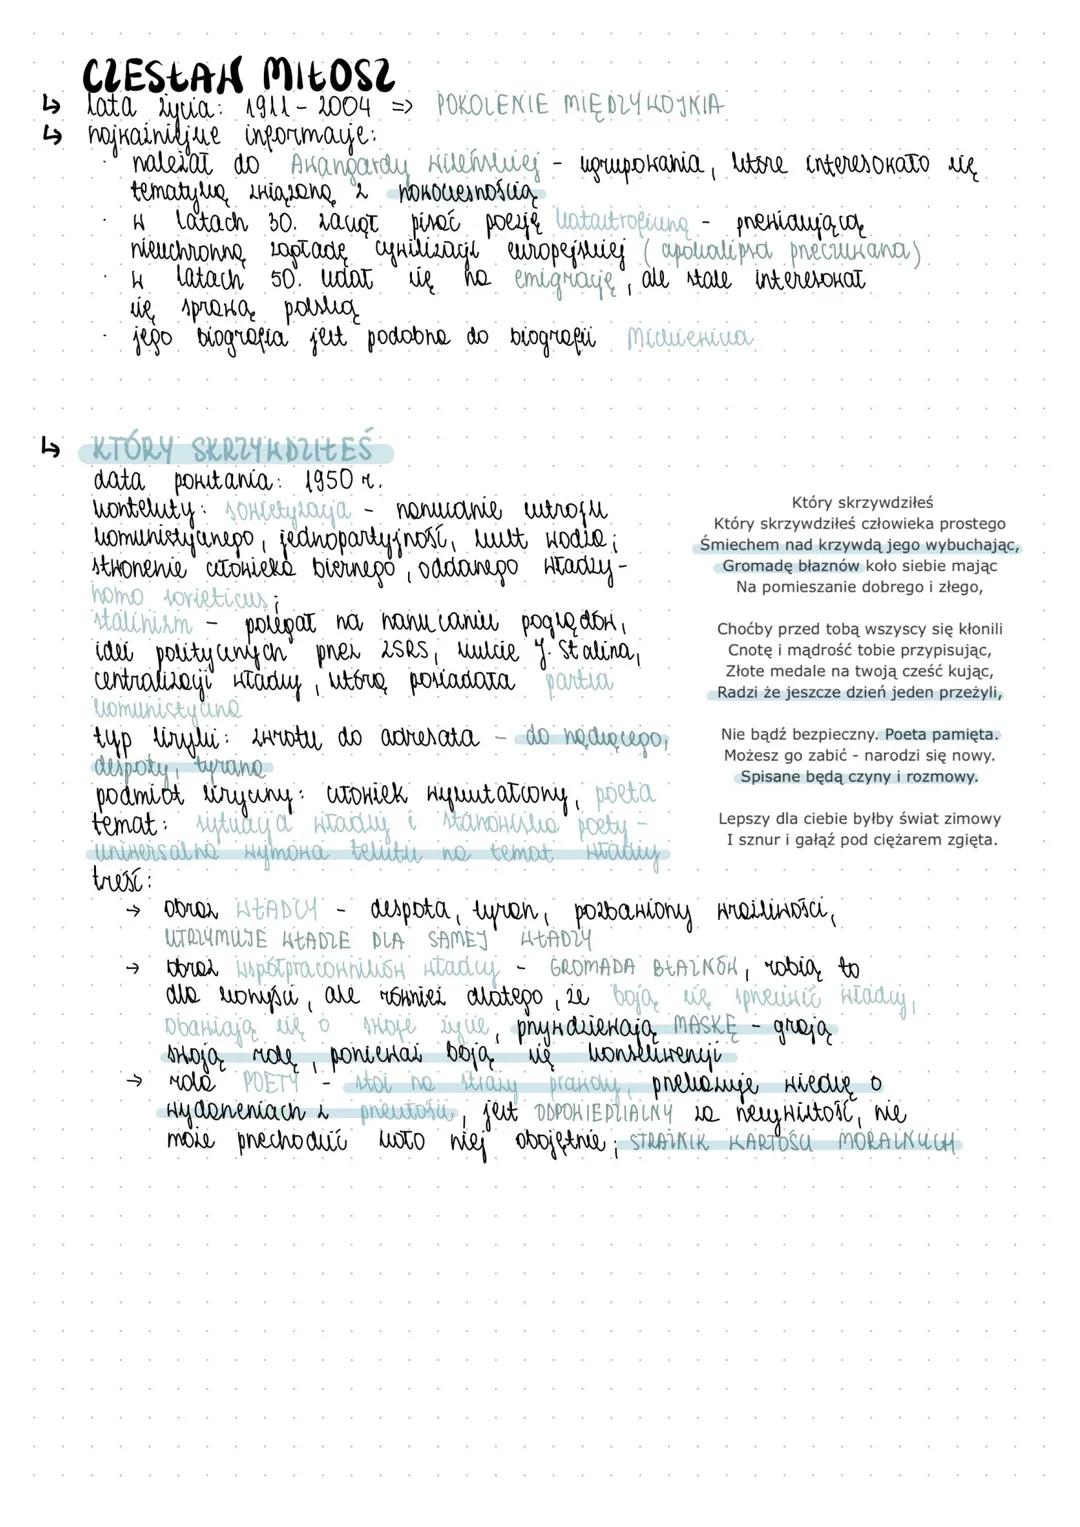 CZESŁAW MIŁOSZ
↳ lata życia: 1911 - 2004 => POKOLENIE MIĘDZYWOJNIA
↳ najważniejsze informacje:
· należał do Awangardy Wileńskiej - ugrupowania, które interesowało się
tematyką związaną z nowoczesnością
· w latach 30. zaczął pisać poezję katastroficzną - przewidującą
nieuchronną zagładę cywilizacji europejskiej (apokalipsa przeczuwana)
· w latach 50. udał się na emigrację, ale stale interesował
się sprawą polską
· jego biografia jest podobna do biografii Mickiewicza
↳ KTÓRY SKRZYWDZIŁEŚ
data powstania: 1950 r.
konteksty: sowietyzacja - narzucanie ustroju
komunistycznego, jednopartyjność, kult wodza;
stworzenie człowieka biernego, oddanego władzy -
homo sovieticus;
stalinizm - polegał na narzucaniu poglądów,
idei politycznych przez ZSRS, kulcie J. Stalina,
centralizacji władzy, którą posiadała partia
komunistyczna
typ liryki: zwrotu do adresata - do rządzącego,
despoty, tyrana
podmiot liryczny: człowiek wykształcony, poeta
temat: sytuacja władzy i stanowisko poety -
uniwersalna wymowa tekstu na temat władzy
treść:
Który skrzywdziłeś
Który skrzywdziłeś człowieka prostego
Śmiechem nad krzywdą jego wybuchając,
Gromadę błaznów koło siebie mając
Na pomieszanie dobrego i złego,
Choćby przed tobą wszyscy się kłonili
Cnotę i mądrość tobie przypisując,
Złote medale na twoją cześć kując,
Radzi że jeszcze dzień jeden przeżyli,
Nie bądź bezpieczny. Poeta pamięta.
Możesz go zabić - narodzi się nowy.
Spisane będą czyny i rozmowy.
Lepszy dla ciebie byłby świat zimowy
I sznur i gałąź pod ciężarem zgięta.
→ obraz WŁADCY - despota, tyran, pozbawiony wrażliwości,
UTRZYMUJE WŁADZĘ DLA SAMEJ WŁADZY
→ obraz współpracowników władcy - GROMADA BŁAZNÓW, robią to
dla korzyści, ale również dlatego, że boją się sprzeciwić władcy,
obawiają się o swoje życie, przywdziewają MASKĘ - grają
swoją rolę, ponieważ boją się konsekwencji
→ rola POETY - stoi na straży prawdy, przekazuje wiedzę o
wydarzeniach z przeszłości, jest ODPOWIEDZIALNY za rzeczywistość, nie
może przechodzić koło niej obojętnie; STRAŻNIK WARTOŚCI MORALNYCH